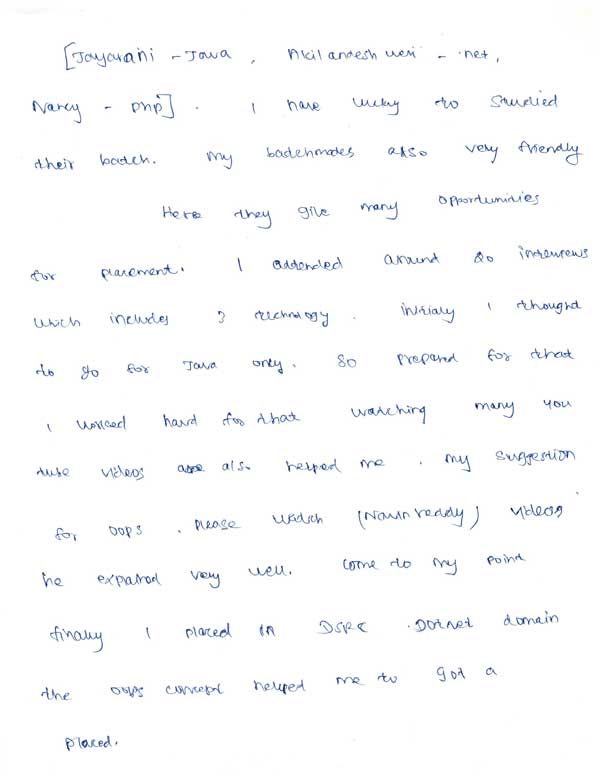 [Jayarani - Java, Akilandeshweri - .net,
Nancy - PHP]. I have lucky to studied
their batch. My batchmates also very friendly
Here they give many opportunities
for placement. I attended around 20 interviews
which includes 3 technology. initialy I thought
to go for Java only. So prepared for that
I worked hard for that watching many you
tube videos are also helped me. My suggestion
for oops. please watch (Navin reddy) videos
he explained very well. Come to my point
finally I placed in DSRC .Dotnet domain
the oops concept helped me to got a
placed.